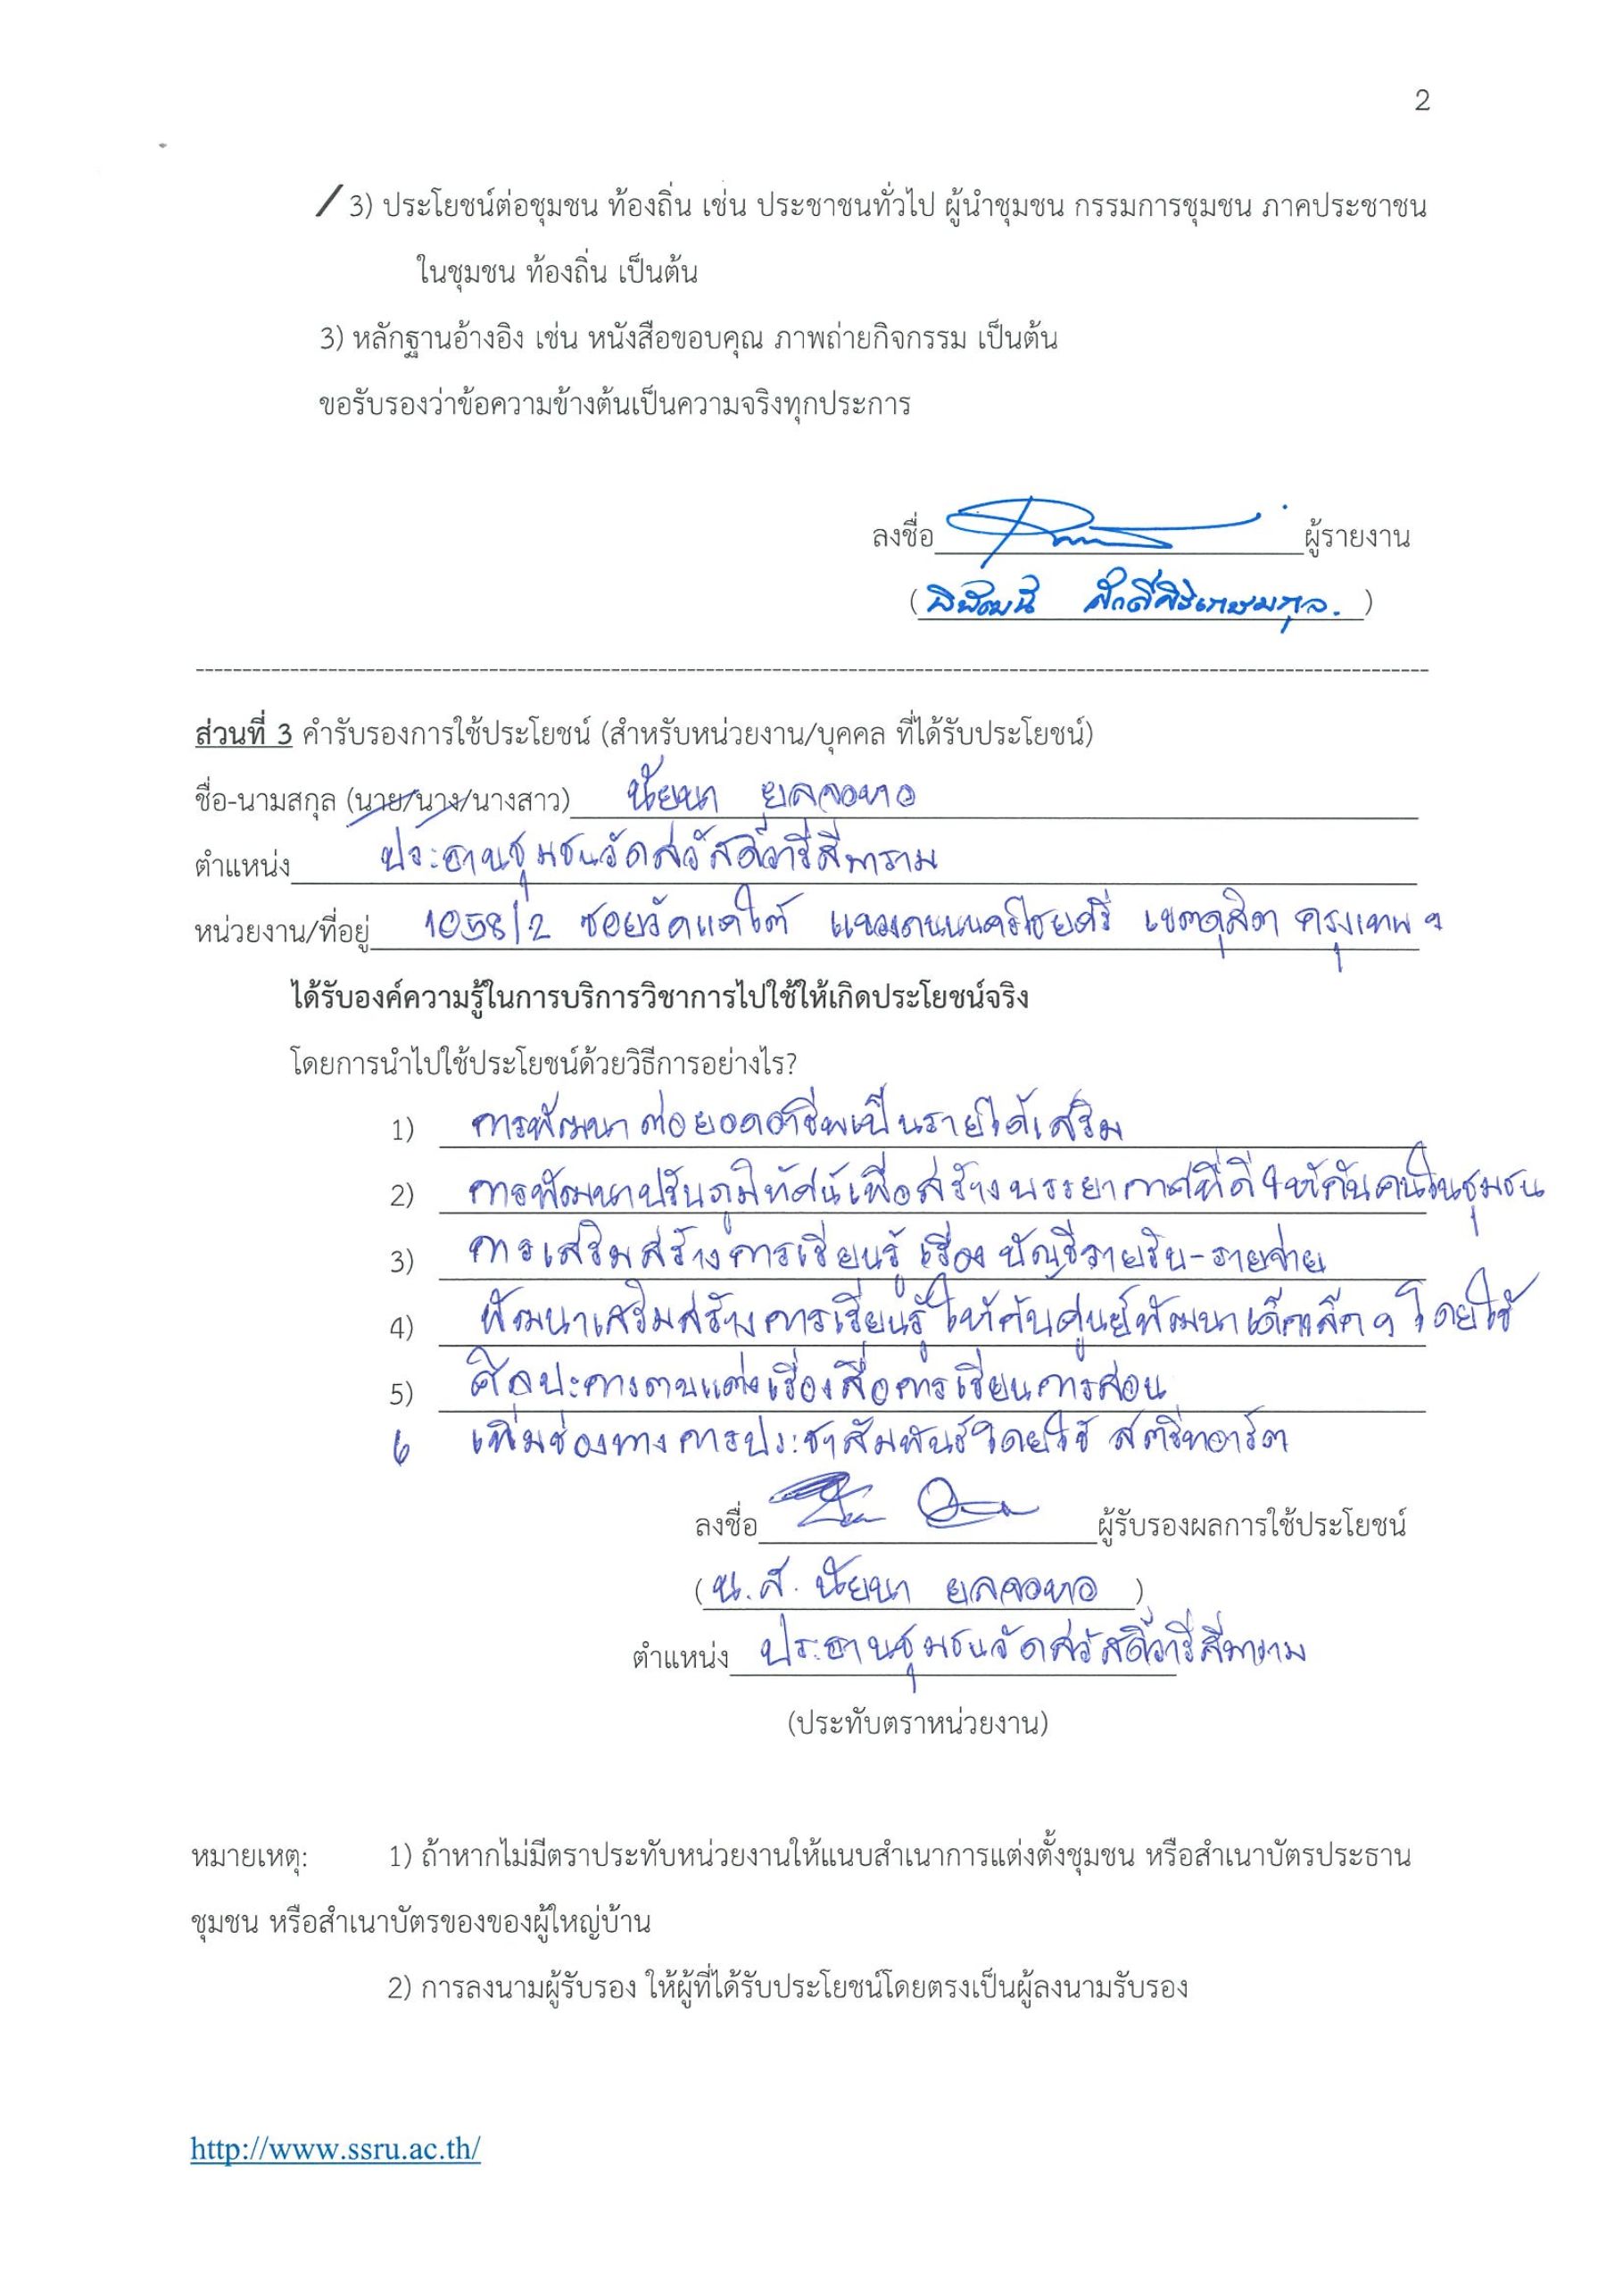 2
/ 3) ประโยชน์ต่อชุมชน ท้องถิ่น เช่น ประชาชนทั่วไป ผู้นำชุมชน กรรมการชุมชน ภาคประชาชน
ในชุมชน ท้องถิ่น เป็นต้น
3) หลักฐานอ้างอิง เช่น หนังสือขอบคุณ ภาพถ่ายกิจกรรม เป็นต้น
ขอรับรองว่าข้อความข้างต้นเป็นความจริงทุกประการ
ลงชื่อ ผู้รายงาน
(พิพัฒน์ ศักดิ์ศิริเกษมกุล.)
ส่วนที่ 3 คำรับรองการใช้ประโยชน์ (สำหรับหน่วยงาน/บุคคล ที่ได้รับประโยชน์)
ชื่อ-นามสกุล (นาย/นาง/นางสาว) นัยนา ยลจอหอ
ตำแหน่ง ประธานชุมชนวัดสวัสดิ์วารีสีมาราม
หน่วยงาน/ที่อยู่ 1058/2 ซอยวัดแคใต้ แขวงถนนนครไชยศรี เขตดุสิต กรุงเทพฯ
ได้รับองค์ความรู้ในการบริการวิชาการไปใช้ให้เกิดประโยชน์จริง
โดยการนำไปใช้ประโยชน์ด้วยวิธีการอย่างไร?
1) การพัฒนาต่อยอดอาชีพเป็นรายได้เสริม
2) การพัฒนาปรับภูมิทัศน์เพื่อสร้างบรรยากาศที่ดีให้กับคนในชุมชน
3) การเสริมสร้างการเรียนรู้ เรื่อง บัญชีรายรับ-รายจ่าย
4) พัฒนาเสริมสร้างการเรียนรู้ให้กับศูนย์พัฒนาเด็กเล็กๆ โดยใช้
5) ศิลปะการตบแต่งเรื่องสื่อการเรียนการสอน
6 เพิ่มช่องทางการประชาสัมพันธ์โดยใช้ สตรีทอาร์ต
ลงชื่อ ผู้รับรองผลการใช้ประโยชน์
(น.ส. นัยนา ยลจอหอ)
ตำแหน่ง ประธานชุมชนวัดสวัสดิ์วารีสีมาราม
(ประทับตราหน่วยงาน)
หมายเหตุ: 1) ถ้าหากไม่มีตราประทับหน่วยงานให้แนบสำเนาการแต่งตั้งชุมชน หรือสำเนาบัตรประธาน
ชุมชน หรือสำเนาบัตรของของผู้ใหญ่บ้าน
2) การลงนามผู้รับรอง ให้ผู้ที่ได้รับประโยชน์โดยตรงเป็นผู้ลงนามรับรอง
http://www.ssru.ac.th/